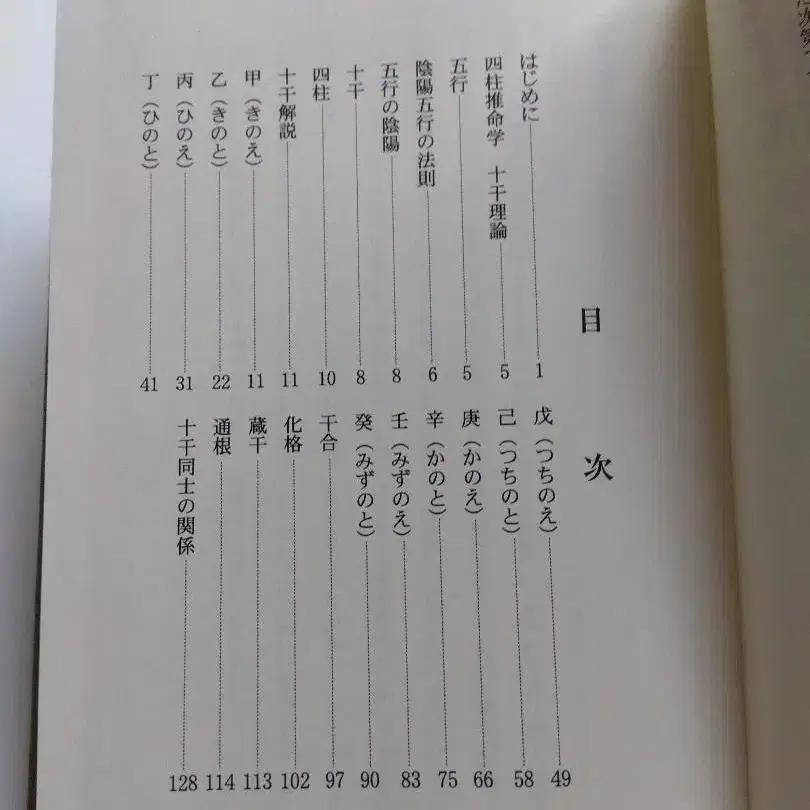 目次
はじめに 1
四柱推命学 十干理論 5
五行 5
陰陽五行の法則 6
五行の陰陽 8
十干 8
四柱 10
十干解説 11
甲(きのえ) 11
乙(きのと) 22
丙(ひのえ) 31
丁(ひのと) 41
戊(つちのえ) 49
己(つちのと) 58
庚(かのえ) 66
辛(かのと) 75
壬(みずのえ) 83
癸(みずのと) 90
干合 97
化格 102
蔵干 113
通根 114
十干同士の関係 128